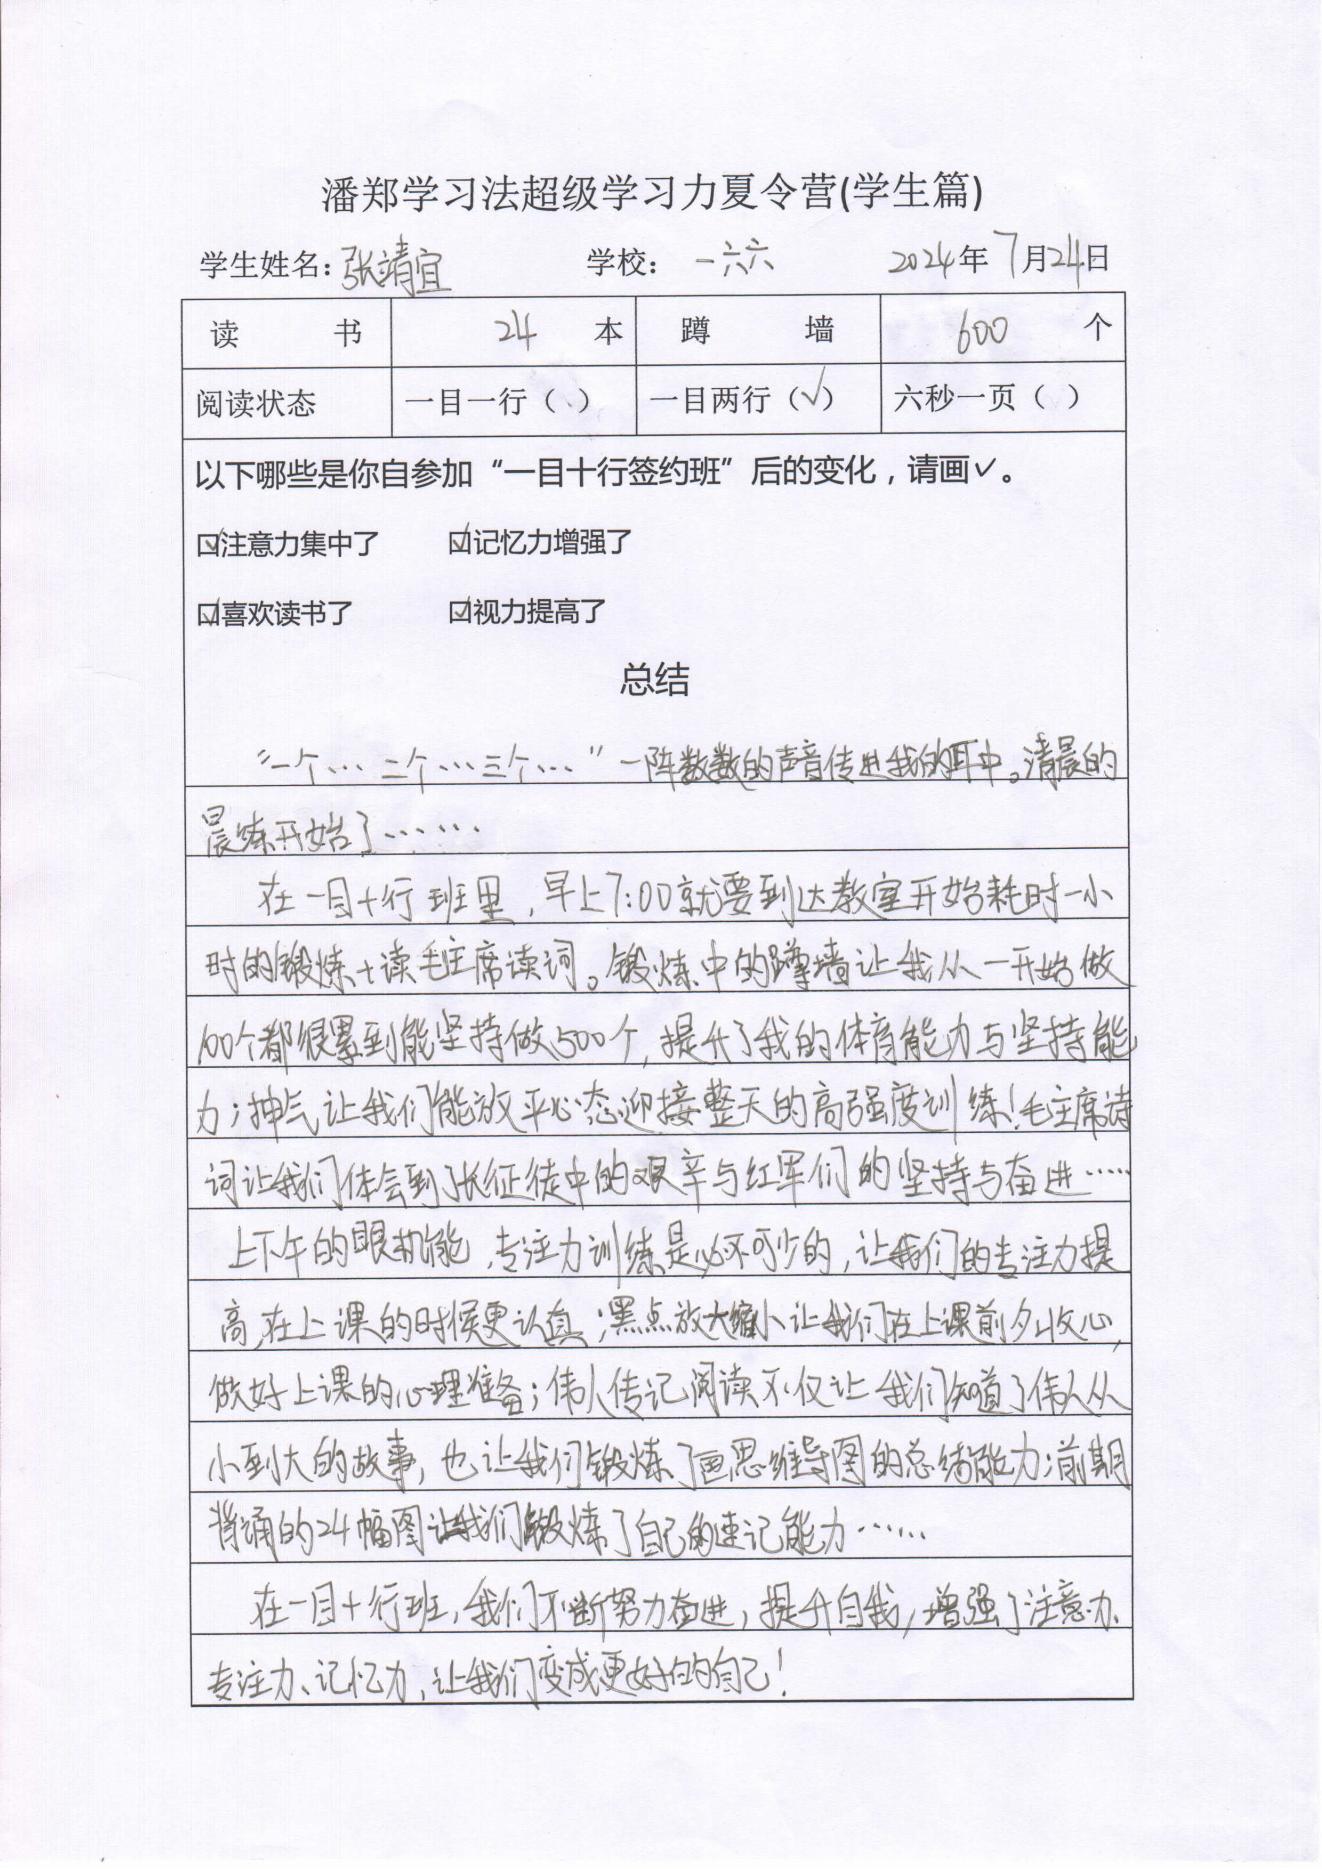 潘郑学习法超级学习力夏令营(学生篇)
学生姓名：张靖宜 学校：一六六 2024年7月24日
读 书 24 本 蹲 墙 600 个
阅读状态 一目一行（ ） 一目两行（√） 六秒一页（ ）
以下哪些是你自参加“一目十行签约班”后的变化，请画✓。
☑注意力集中了 ☑记忆力增强了
☑喜欢读书了 ☑视力提高了
总结
“一个… 二个…三个…”一阵数数的声音传进我的耳中。清晨的
晨炼开始了……
在一目十行班里，早上7:00就要到达教室开始耗时一小
时的锻炼+读毛主席读词。锻炼中的蹲墙让我从一开始做
100个都很累到能坚持做500个，提升了我的体育能力与坚持能
力；抻气让我们能放平心态迎接整天的高强度训练！毛主席诗
词让我们体会到长征徒中的艰辛与红军们的坚持与奋进……
上下午的眼机能，专注力训练是必不可少的，让我们的专注力提
高，在上课的时候更认真；黑点放大缩小让我们在上课前夕收心，
做好上课的心理准备；伟人传记阅读不仅让我们知道了伟人从
小到大的故事，也让我们锻炼了画思维导图的总结能力；前期
背诵的24幅图让我们锻炼了自己的速记能力……
在一目十行班，我们不断努力奋进，提升自我，增强了注意力、
专注力、记忆力，让我们变成更好的自己！